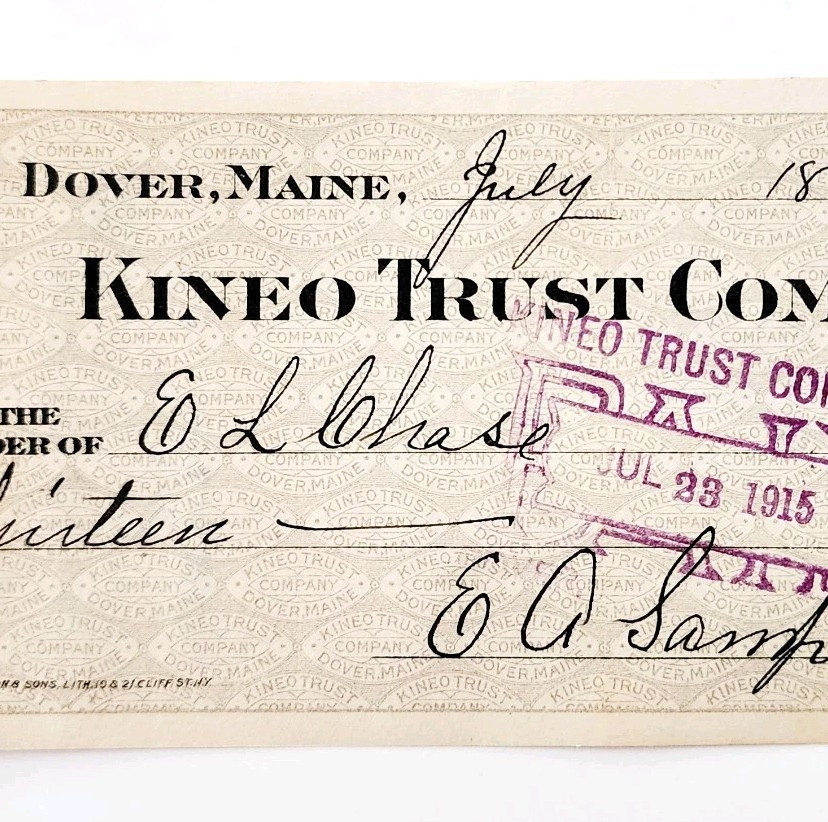 DOVER, MAINE, July 18
KINEO TRUST COM
KINEO TRUST CO
THE
DER OF E L Chase
PA
JUL 23 1915
hirteen
E A Samp
N & SONS. LITH. 19 & 21 CLIFF ST. N.Y.
KINEO TRUST
COMPANY
DOVER, MAINE